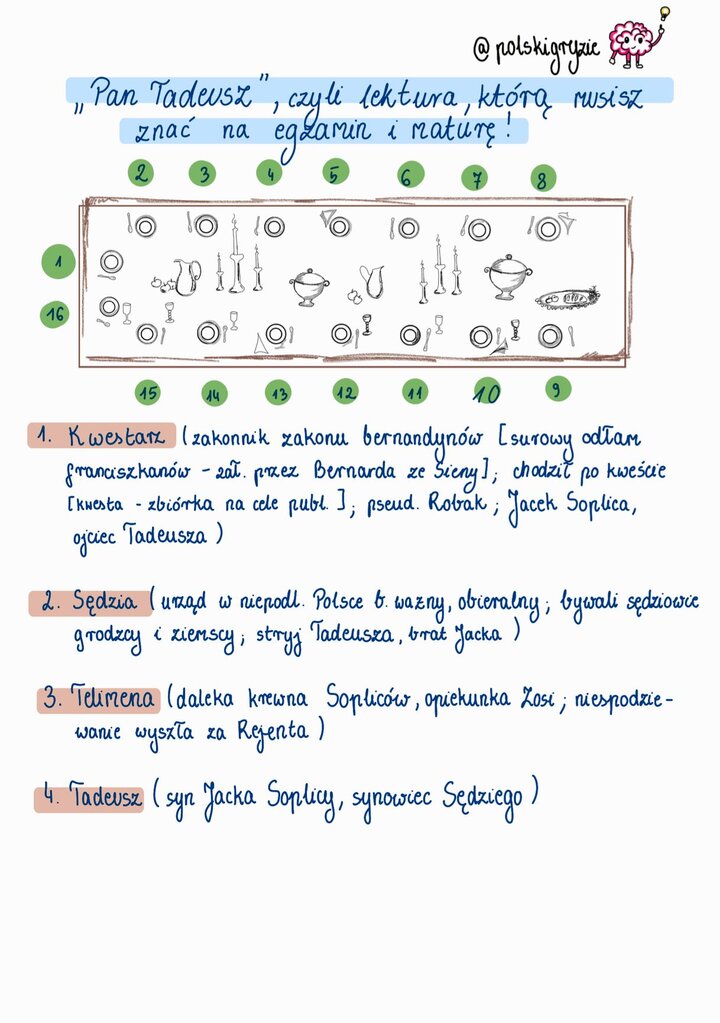 @polskigryzie
„Pan Tadeusz”, czyli lektura, którą musisz
znać na egzamin i maturę!
2 3 4 5 6 7 8
1
16
15 14 13 12 11 10 9
1. Kwestarz (zakonnik zakonu bernandynów [surowy odłam
franciszkanów - zał. przez Bernarda ze Sieny]; chodził po kweście
[kwesta - zbiórka na cele publ.]; pseud. Robak; Jacek Soplica,
ojciec Tadeusza)
2. Sędzia (urząd w niepodl. Polsce b. ważny, obieralny; bywali sędziowie
grodzcy i ziemscy; stryj Tadeusza, brat Jacka)
3. Telimena (daleka krewna Sopliców, opiekunka Zosi; niespodzie-
wanie wyszła za Rejenta)
4. Tadeusz (syn Jacka Soplicy, synowiec Sędziego)